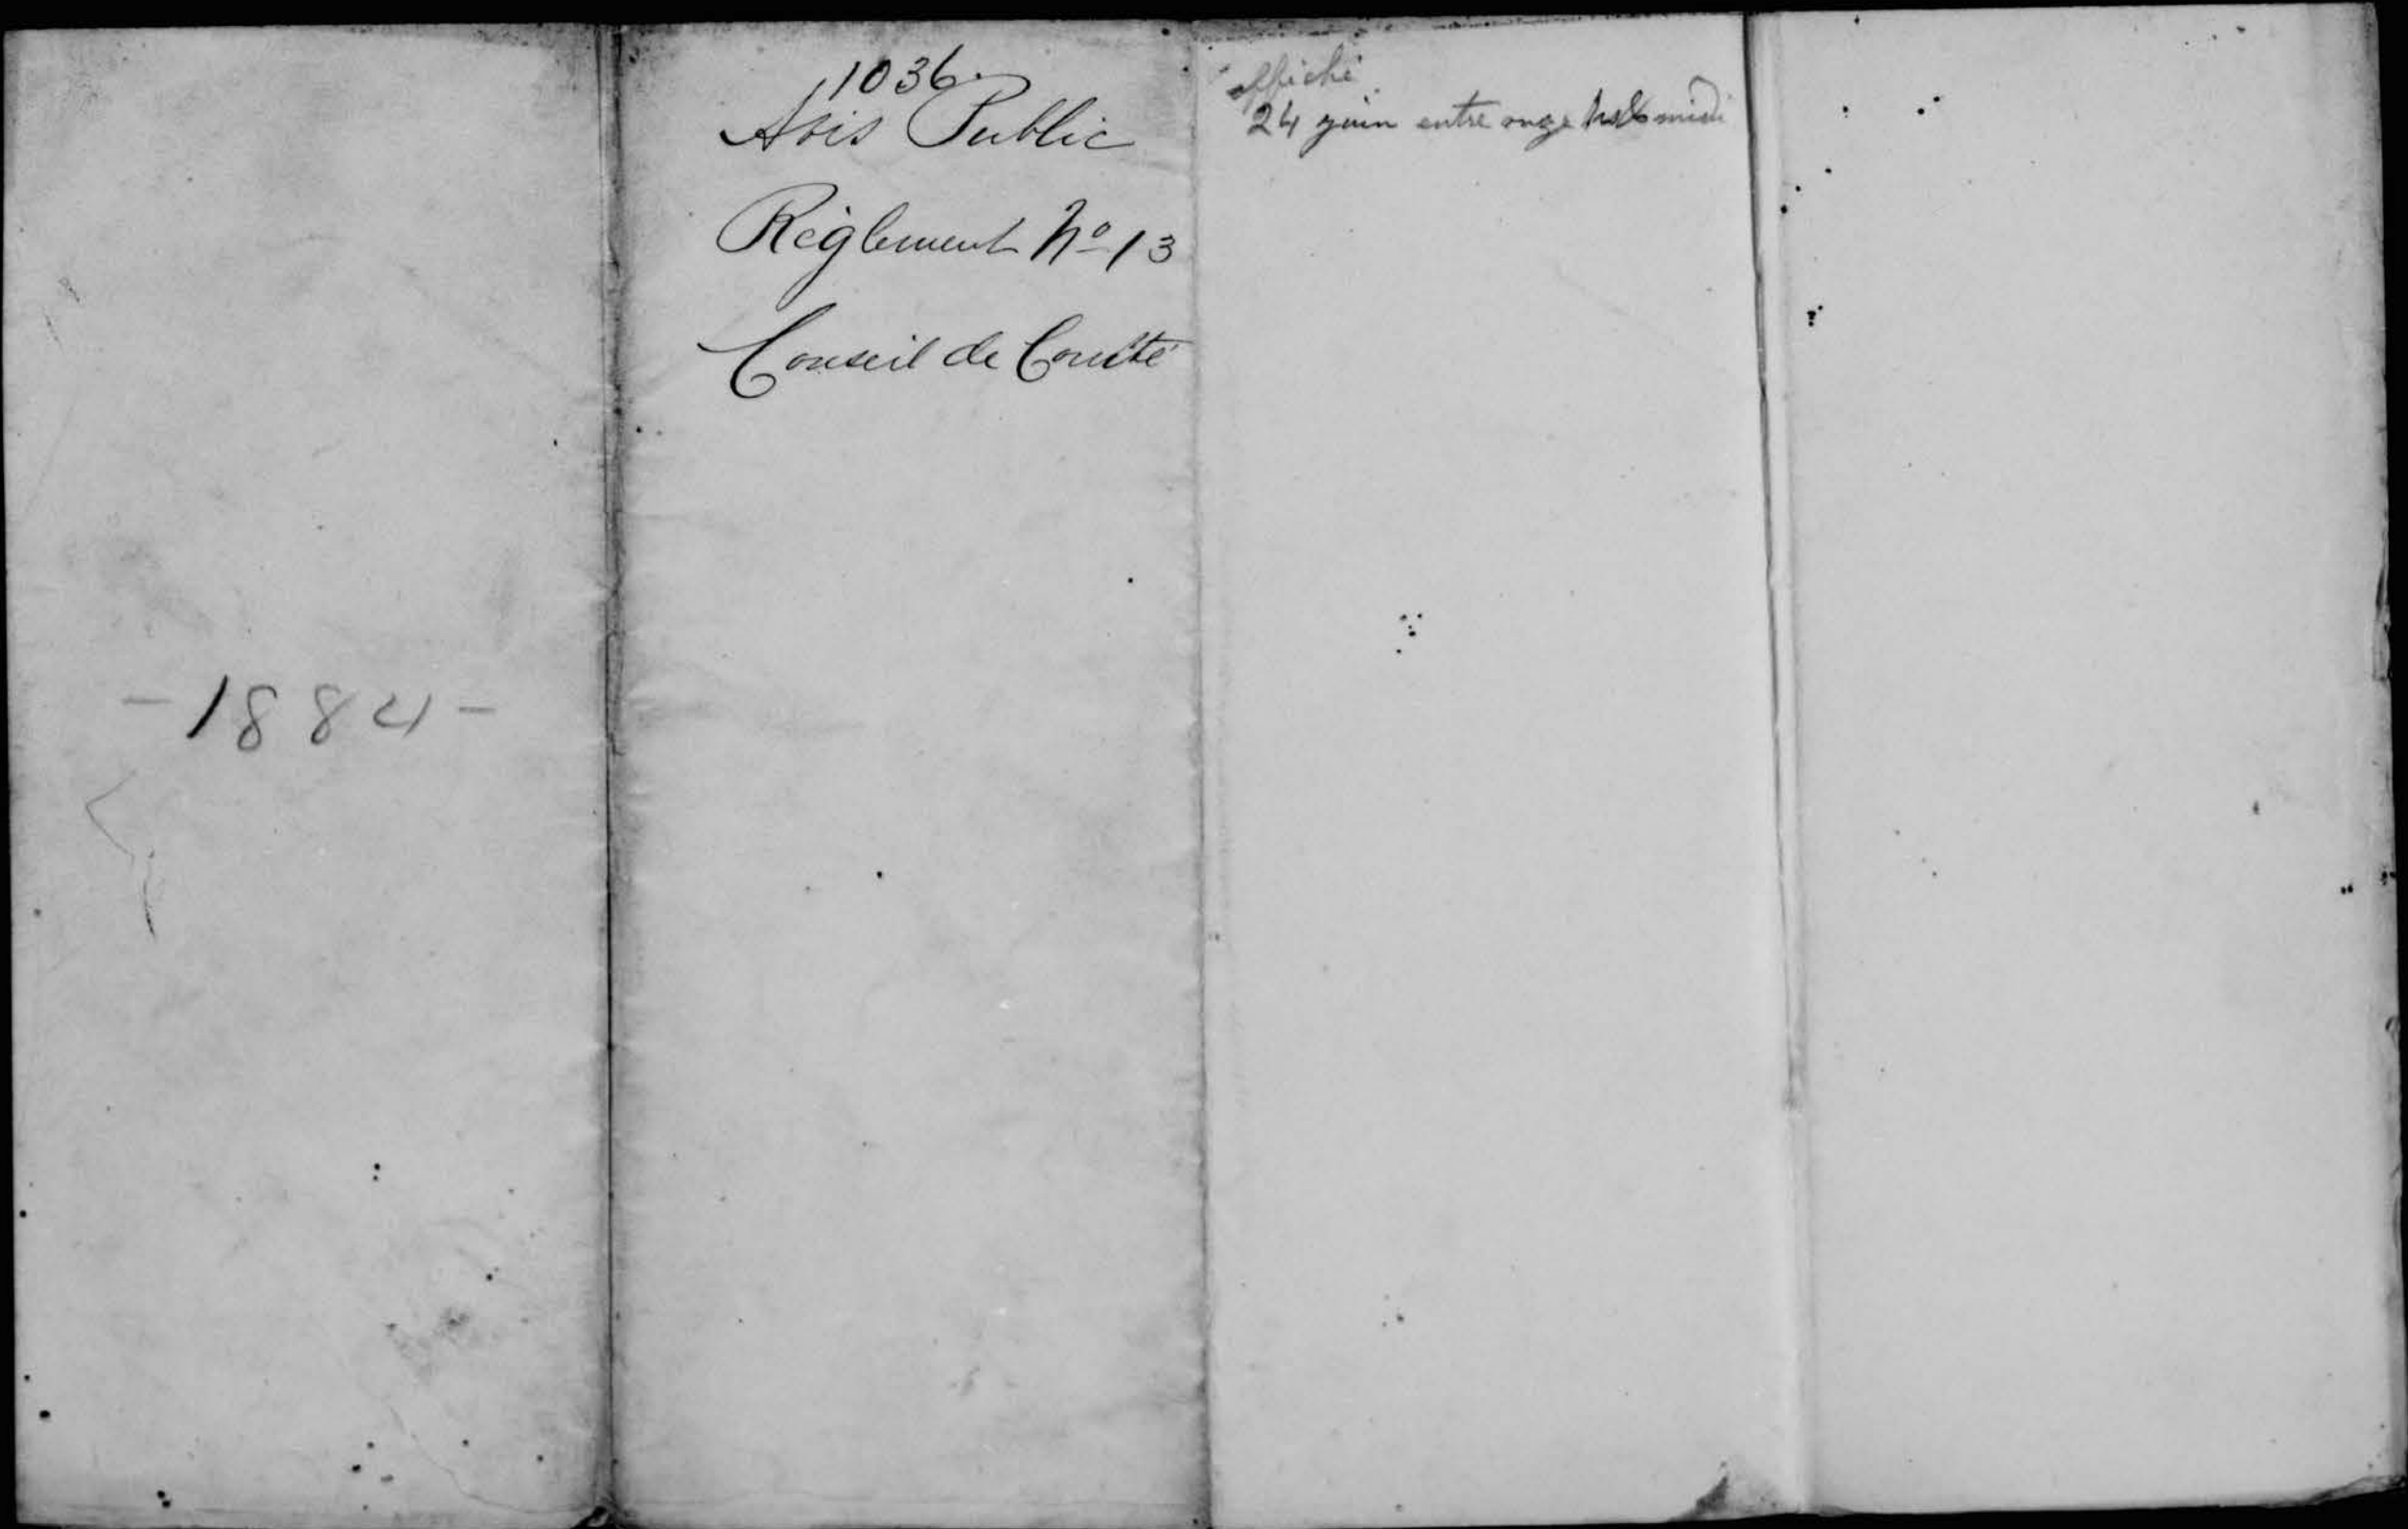 -1884-
1036.
Avis Public
Règlement No 13
Conseil de Comté
affiché
24 juin entre onze hrs & midi